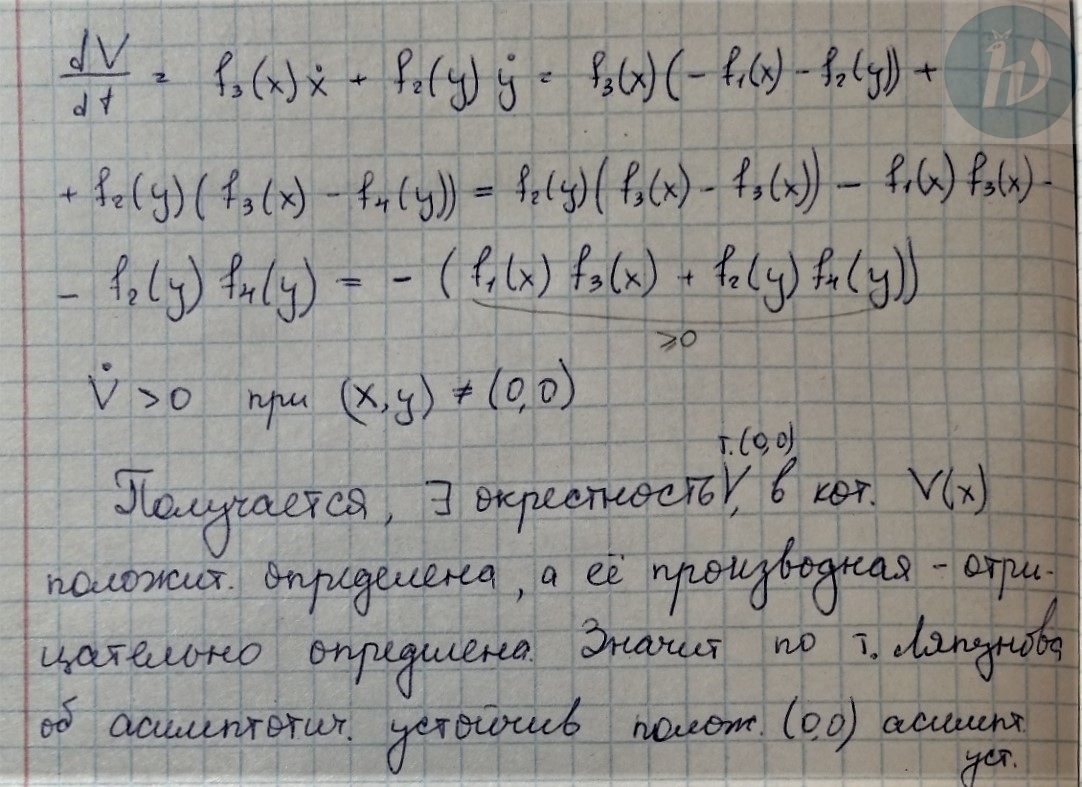 dV/dt = f₃(x)ẋ + f₂(y)ẏ = f₃(x)(-f₁(x) - f₂(y)) +
+ f₂(y)(f₃(x) - f₄(y)) = f₂(y)(f₃(x) - f₃(x)) - f₁(x) f₃(x) -
- f₂(y) f₄(y) = - (f₁(x) f₃(x) + f₂(y) f₄(y))
⩾0
V̇ >0 при (x,y) ≠ (0,0)
т.(0,0)
Получается, ∃ окрестность V, в кот. V(x)
положит. определена, а её производная - отри-
цательно определена. Значит по т. Ляпунова
об асимптотич. устойчив полож. (0,0) асимпт.
уст.